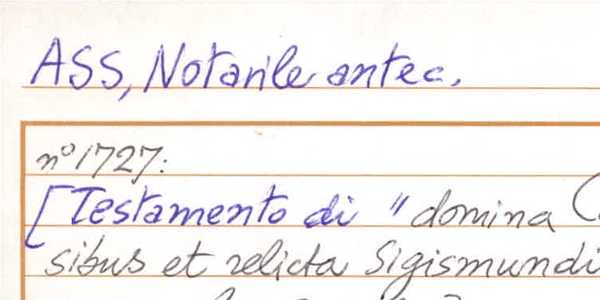 ASS, Notarile antec.
n° 1727:
[Testamento di "domina
sibus et relicta Sigismundi